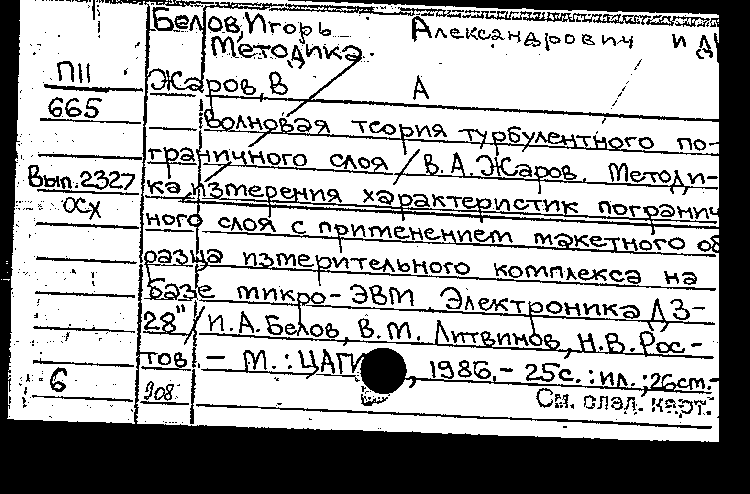 Белов, Игорь Александрович и д
Методика
П11
Жаров, В А
665
Волновая теория турбулентного по-
граничного слоя / В.А. Жаров. Методи-
Вып.2327
ка измерения характеристик погранич
осх
ного слоя с применением макетного об
разца измерительного комплекса на
базе микро-ЭВМ "Электроника ДЗ-
28" / И.А. Белов, В.М. Литвинов, Н.В. Рос-
тов. - М.: ЦАГИ, 1986. - 25с.: ил.; 26см.-
6
908
См. след. карт.